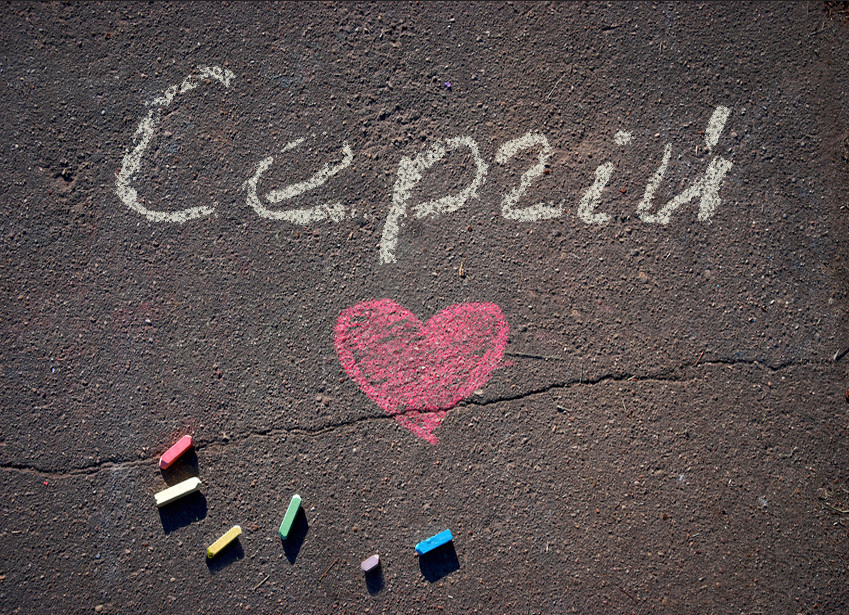 Сергій